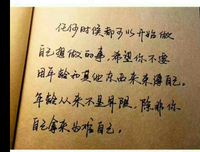 任何时候都可以开始做
自己想做的事,希望你不要
用年龄和其他东西来束缚自己。
年龄从来不是界限,除非你
自己拿来为难自己。